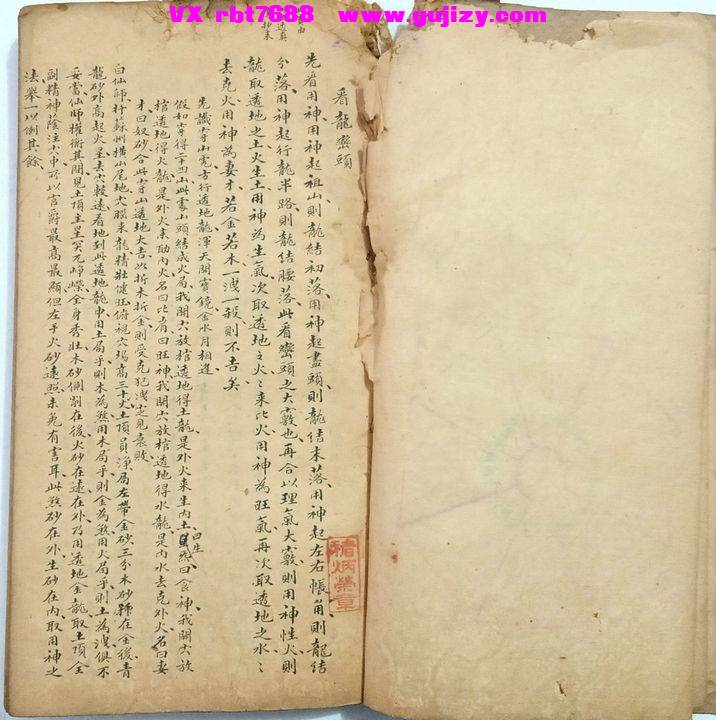 VX rbt7688    www.gujizy.com
看龍巒頭
先看用神用神起祖山則龍結初落用神起盡頭則龍結末落用神起左右帳角則龍結
分落用神起行龍半路則龍結腰落此看巒頭之大竅也再合以理氣大竅則用神性火則
龍取透地之土火生土用神為生氣次取透地之火火來比火用神為旺氣再次取透地之水水
去克火用神為妻才若金若木一洩一殺則不吉矣
先識穿山虎方行透地龍渾天開寶鏡金水月相逢
假如穿得二十四山此處山頭結成火局我開穴放棺透地得土龍是外火來生内土曰生曰食神我開穴放
棺透地得火龍是外火來助内火名曰比肩曰旺神我開穴放棺透地得水龍是内水去克外火名曰妻
才曰奴砂合此穿山透地大吉此折木折金則受克犯洩定見衰敗
白仙師扦蘇州橫山尾地穴腦來龍精壯健旺俯視穴塲高三十丈土頂員淨局左帶金砂三分木砂歸在金後青
龍砂外高起火星去穴較遠看地到此透地龍中用土局乎則木為煞用木局乎則金為煞用火局乎則土為洩俱不
妥當仙師權衡其間見土頂主星冥冗崢嶸全身秀壯木砂側剖在後火砂在遠在外乃用透地金龍取土頂全
副精神蔭注穴中所以言爵最高最顯但左手火砂遠照未免有害耳此煞砂在外生砂在内取用神之
法舉一以例其餘